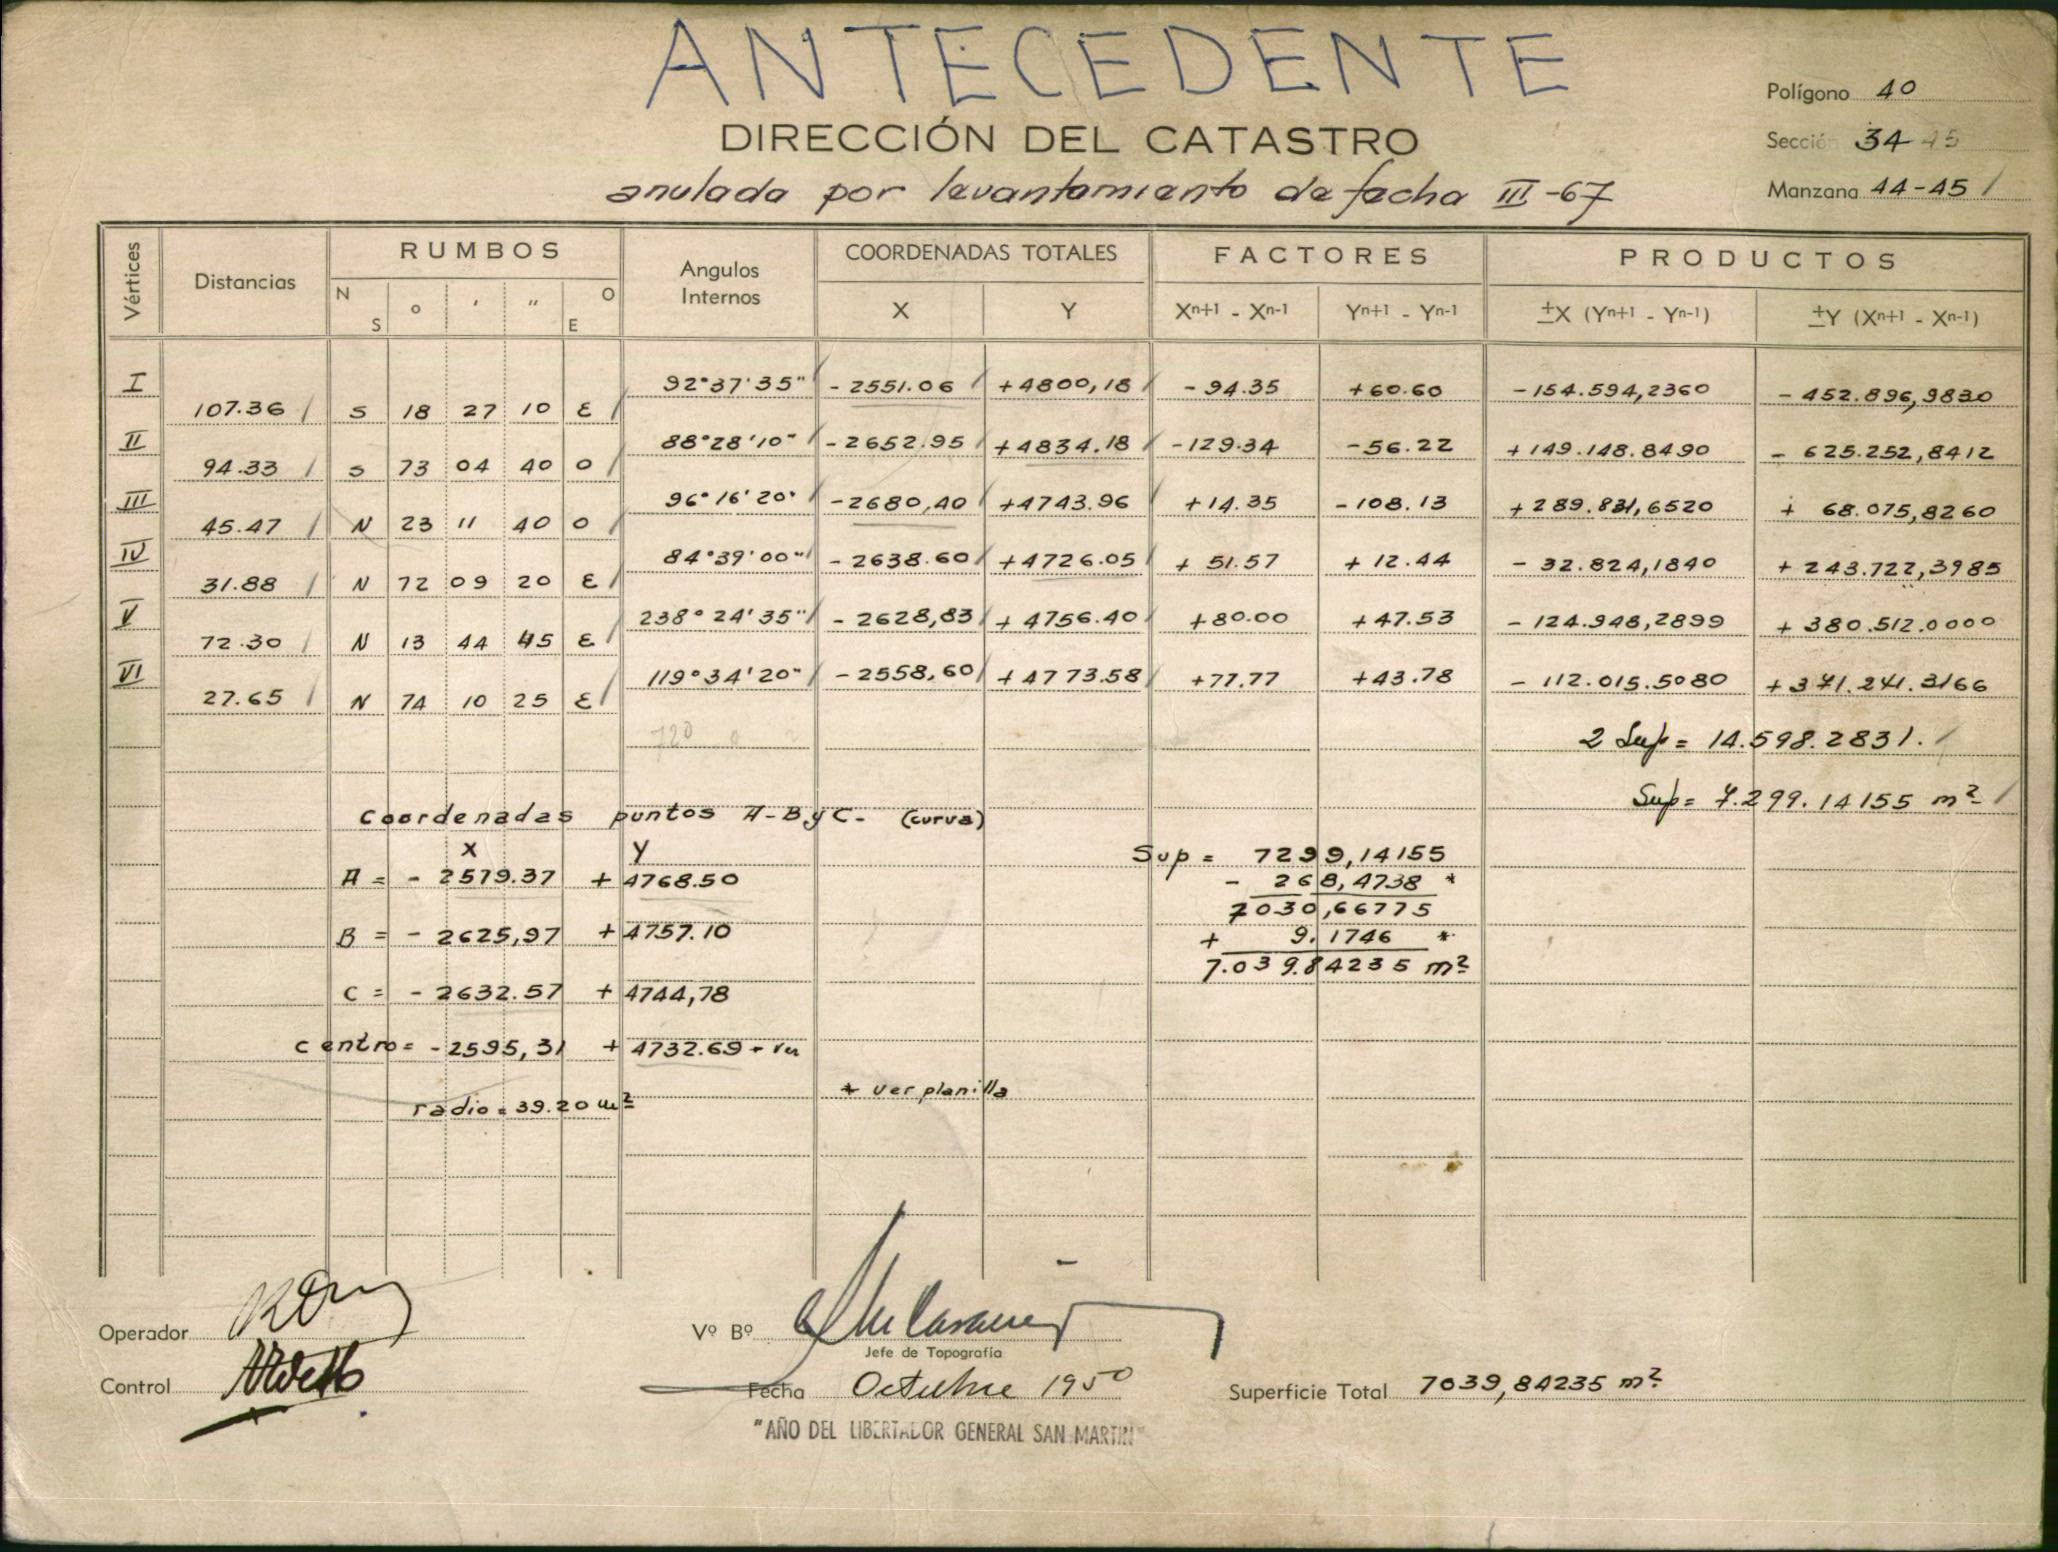 ANTECEDENTE
DIRECCIÓN DEL CATASTRO
anulada por levantamiento de fecha III-67
Polígono 40
Sección 34 45
Manzana 44-45
Vértices Distancias RUMBOS Angulos Internos COORDENADAS TOTALES FACTORES PRODUCTOS
N S ° ' " O E X Y Xn+1 - Xn-1 Yn+1 - Yn-1 ±X (Yn+1 - Yn-1) ±Y (Xn+1 - Xn-1)
I 92°37'35" -2551.06 +4800,18 -94.35 +60.60 -154.594,2360 -452.896,9830
107.36 S 18 27 10 E
II 88°28'10" -2652.95 +4834.18 -129.34 -56.22 +149.148.8490 - 625.252,8412
94.33 S 73 04 40 O
III 96°16'20" -2680,40 +4743.96 +14.35 -108.13 +289.831,6520 + 68.075,8260
45.47 N 23 11 40 O
IV 84°39'00" -2638.60 +4726.05 + 51.57 + 12.44 - 32.824,1840 + 243.722,3985
31.88 N 72 09 20 E
V 238°24'35" - 2628,83 + 4756.40 +80.00 +47.53 - 124.948,2899 + 380.512.0000
72.30 N 13 44 45 E
VI 119°34'20" -2558,60 +4773.58 +77.77 +43.78 - 112.015.5080 +371.241.3166
27.65 N 74 10 25 E
720
2 Sup= 14.598.2831.
Sup= 7.299.14155 m²
Coordenadas puntos A-B y C- (curva)
X Y
A = - 2579.37 + 4768.50
B = - 2625,97 + 4757.10
C = - 2632.57 + 4744,78
centro= -2595,31 + 4732.69 * ver
radio = 39.20 m²
* ver planilla
Sup = 7299,14155
- 268,4738 *
7030,66775
+ 9.1746 *
7.039.84235 m²
Operador
Control
Vº Bº
Jefe de Topografía
Fecha Octubre 1950
"AÑO DEL LIBERTADOR GENERAL SAN MARTIN"
Superficie Total 7039,84235 m²